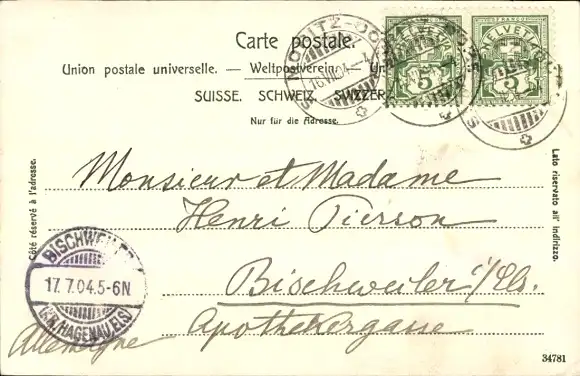 Carte postale.
Union postale universelle. — Weltpostverein. — Un
SUISSE. SCHWEIZ. SVIZZER
Nur für die Adresse.
ST. MORITZ-DO
16.VII.04.
HELVETIA
5
HELVETIA
5
Côté réservé à l'adresse.
Lato riservato all' indirizzo.
Monsieur et Madame
Henri Pierson
Bischweiler i/Els.
Apothekergasse
Allemagne
BISCHWEILER
17.7.04.5-6N
(KR.HAGENAU ELS)
34781